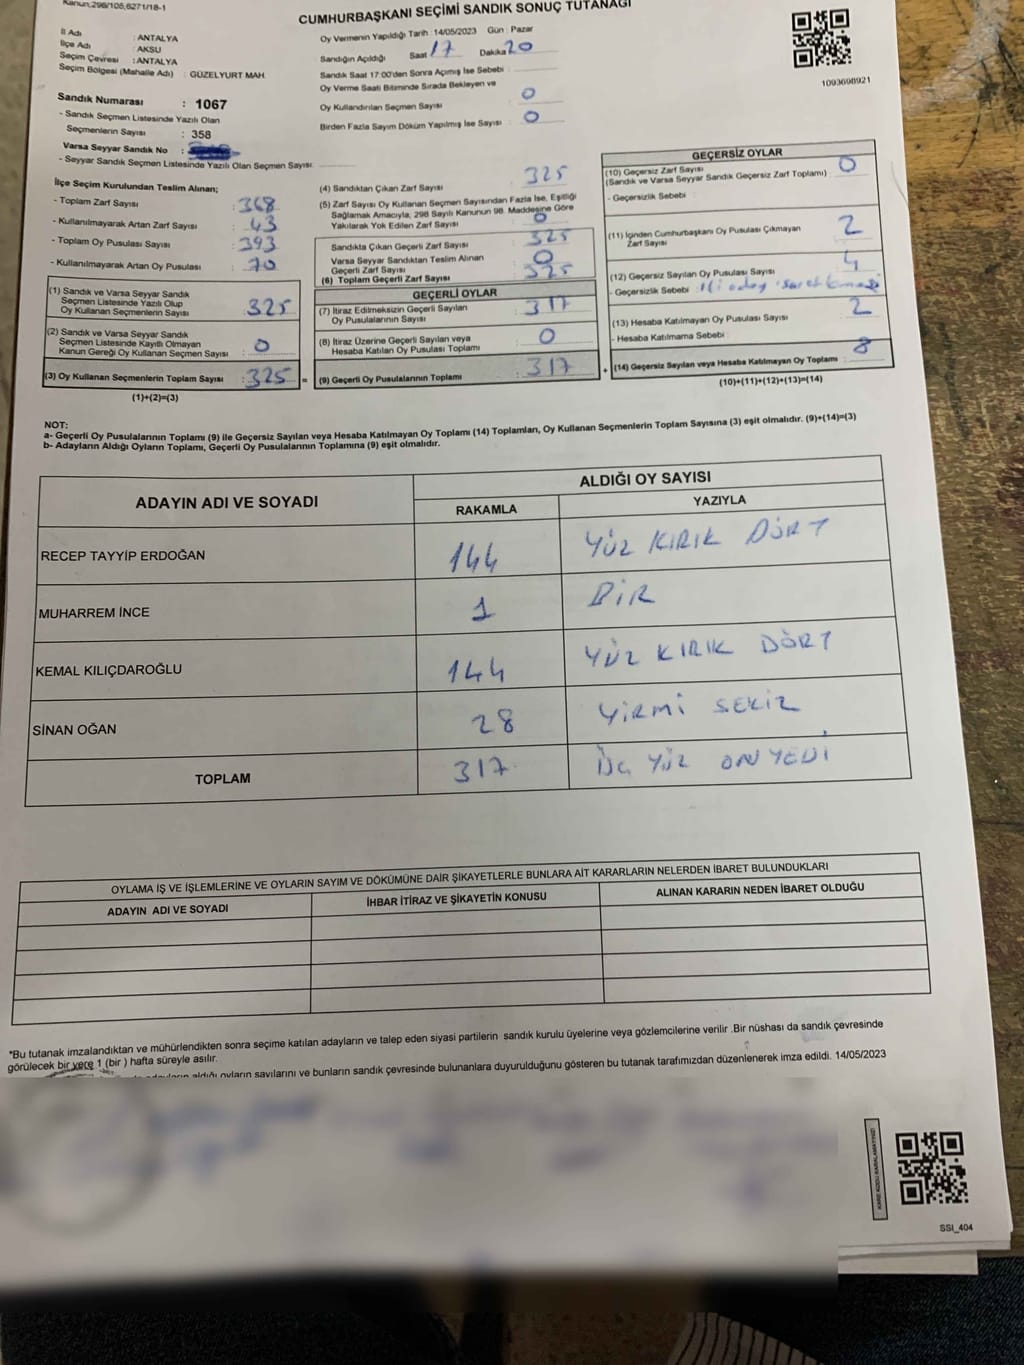 Kanun;298/105,6271/18-1
CUMHURBAŞKANI SEÇİMİ SANDIK SONUÇ TUTANAĞI
İl Adı : ANTALYA
İlçe Adı : AKSU
Seçim Çevresi : ANTALYA
Seçim Bölgesi (Mahalle Adı) : GÜZELYURT MAH.
Oy Vermenin Yapıldığı Tarih :14/05/2023 Gün : Pazar
Sandığın Açıldığı Saat 17 Dakika 20
Sandık Saat 17:00'den Sonra Açımış İse Sebebi :
Oy Verme Saati Bitiminde Sırada Bekleyen ve
Oy Kullandırılan Seçmen Sayısı : 0
Birden Fazla Sayım Döküm Yapılmış İse Sayısı : 0
1093698921
Sandık Numarası : 1067
- Sandık Seçmen Listesinde Yazılı Olan
Seçmenlerin Sayısı : 358
Varsa Seyyar Sandık No :
- Seyyar Sandık Seçmen Listesinde Yazılı Olan Seçmen Sayısı:
İlçe Seçim Kurulundan Teslim Alınan;
- Toplam Zarf Sayısı : 368
- Kullanılmayarak Artan Zarf Sayısı : 43
- Toplam Oy Pusulası Sayısı : 393
- Kullanılmayarak Artan Oy Pusulası : 70
(1) Sandık ve Varsa Seyyar Sandık
Seçmen Listesinde Yazılı Olup
Oy Kullanan Seçmenlerin Sayısı : 325
(2) Sandık ve Varsa Seyyar Sandık
Seçmen Listesinde Kayıtlı Olmayan
Kanun Gereği Oy Kullanan Seçmen Sayısı : 0
(3) Oy Kullanan Seçmenlerin Toplam Sayısı : 325 =
(1)+(2)=(3)
(4) Sandıktan Çıkan Zarf Sayısı : 325
(5) Zarf Sayısı Oy Kullanan Seçmen Sayısından Fazla İse, Eşitliği
Sağlamak Amacıyla, 298 Sayılı Kanunun 98. Maddesine Göre
Yakılarak Yok Edilen Zarf Sayısı : 0
Sandıkta Çıkan Geçerli Zarf Sayısı : 325
Varsa Seyyar Sandıktan Teslim Alınan
Geçerli Zarf Sayısı : 0
(6) Toplam Geçerli Zarf Sayısı : 325
GEÇERLİ OYLAR
(7) İtiraz Edilmeksizin Geçerli Sayılan
Oy Pusulalarının Sayısı : 317
(8) İtiraz Üzerine Geçerli Sayılan veya
Hesaba Katılan Oy Pusulası Toplamı : 0
(9) Geçerli Oy Pusulalarının Toplamı : 317 +
GEÇERSİZ OYLAR
(10) Geçersiz Zarf Sayısı : 0
(Sandık ve Varsa Seyyar Sandık Geçersiz Zarf Toplamı)
- Geçersizlik Sebebi :
(11) İçinden Cumhurbaşkanı Oy Pusulası Çıkmayan
Zarf Sayısı : 2
(12) Geçersiz Sayılan Oy Pusulası Sayısı : 4
- Geçersizlik Sebebi :
(13) Hesaba Katılmayan Oy Pusulası Sayısı : 2
- Hesaba Katılmama Sebebi :
(14) Geçersiz Sayılan veya Hesaba Katılmayan Oy Toplamı : 8
(10)+(11)+(12)+(13)=(14)
NOT:
a- Geçerli Oy Pusulalarının Toplamı (9) ile Geçersiz Sayılan veya Hesaba Katılmayan Oy Toplamı (14) Toplamları, Oy Kullanan Seçmenlerin Toplam Sayısına (3) eşit olmalıdır. (9)+(14)=(3)
b- Adayların Aldığı Oyların Toplamı, Geçerli Oy Pusulalarının Toplamına (9) eşit olmalıdır.
ADAYIN ADI VE SOYADI
ALDIĞI OY SAYISI
RAKAMLA YAZIYLA
RECEP TAYYİP ERDOĞAN 144 YÜZ KIRIK DÖRT
MUHARREM İNCE 1 BİR
KEMAL KILIÇDAROĞLU 144 YÜZ KIRIK DÖRT
SİNAN OĞAN 28 YİRMİ SEKİZ
TOPLAM 317 ÜÇ YÜZ ON YEDİ
OYLAMA İŞ VE İŞLEMLERİNE VE OYLARIN SAYIM VE DÖKÜMÜNE DAİR ŞİKAYETLERLE BUNLARA AİT KARARLARIN NELERDEN İBARET BULUNDUKLARI
ADAYIN ADI VE SOYADI İHBAR İTİRAZ VE ŞİKAYETİN KONUSU ALINAN KARARIN NEDEN İBARET OLDUĞU
*Bu tutanak imzalandıktan ve mühürlendikten sonra seçime katılan adayların ve talep eden siyasi partilerin sandık kurulu üyelerine veya gözlemcilerine verilir .Bir nüshası da sandık çevresinde
görülecek bir yere 1 (bir ) hafta süreyle asılır.
aldığı oyların sayılarını ve bunların sandık çevresinde bulunanlara duyurulduğunu gösteren bu tutanak tarafımızdan düzenlenerek imza edildi. 14/05/2023
KARE KODU KARALAMAYINIZ!
SSI_404